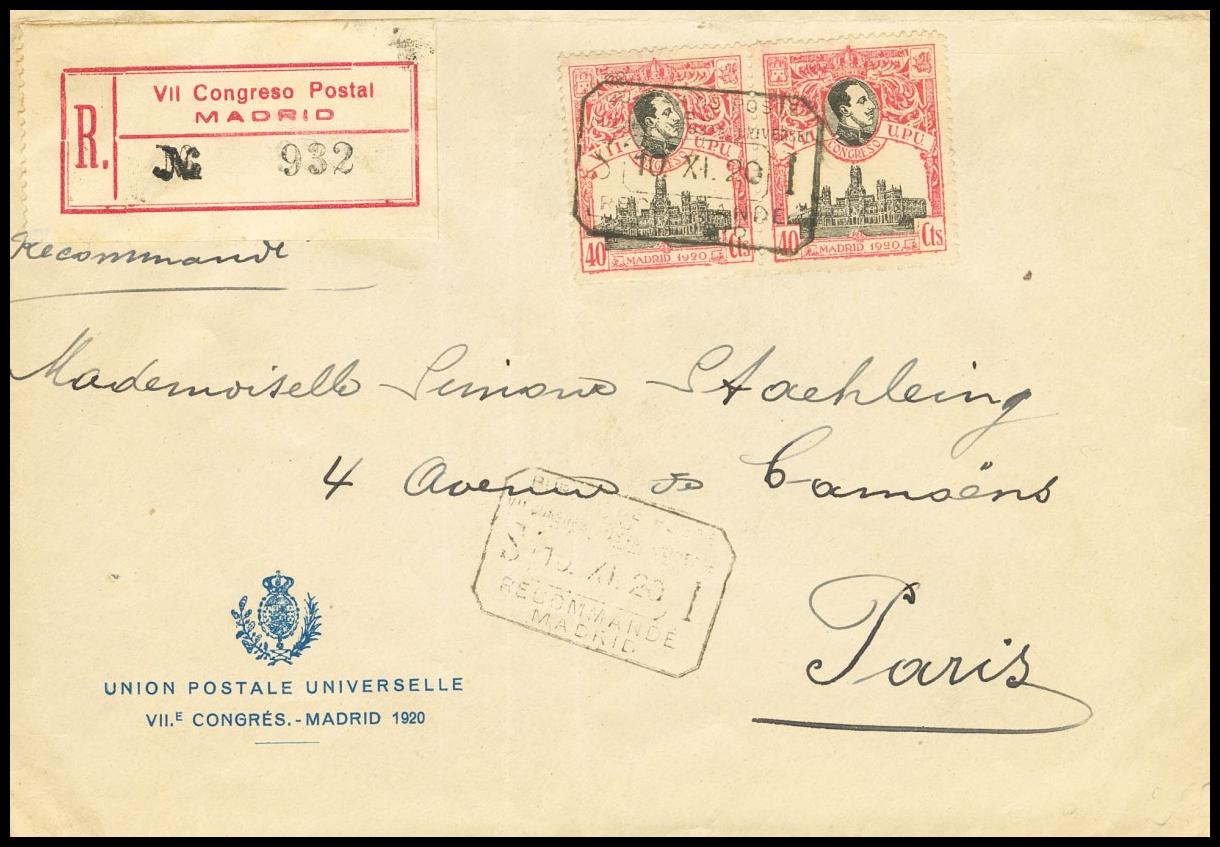 VII Congreso Postal
MADRID
R.
№ 932
Recommandé
VII CONGRESO U.P.U.
40 Cts
MADRID 1920
CONGRESO U.P.U.
40 Cts
MADRID 1920
10 XI. 20 I
Mademoiselle Simone Staehleing
4 Avenue de Camoëns
Paris
10. XI. 20 I
RECOMMANDÉ
MADRID
UNION POSTALE UNIVERSELLE
VII.E CONGRÉS.-MADRID 1920